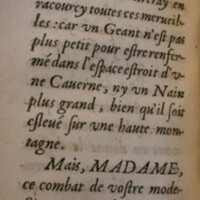 racourcy toutes ces merueil-
les: car vn Geant n'est pas
plus petit pour estre renfer-
mé dans l'espace estroit d'v-
ne Cauerne, ny vn Nain
plus grand, bien qu'il soit
esleué sur une haute mon-
tagne.
Mais, MADAME,
ce combat de vostre mode-